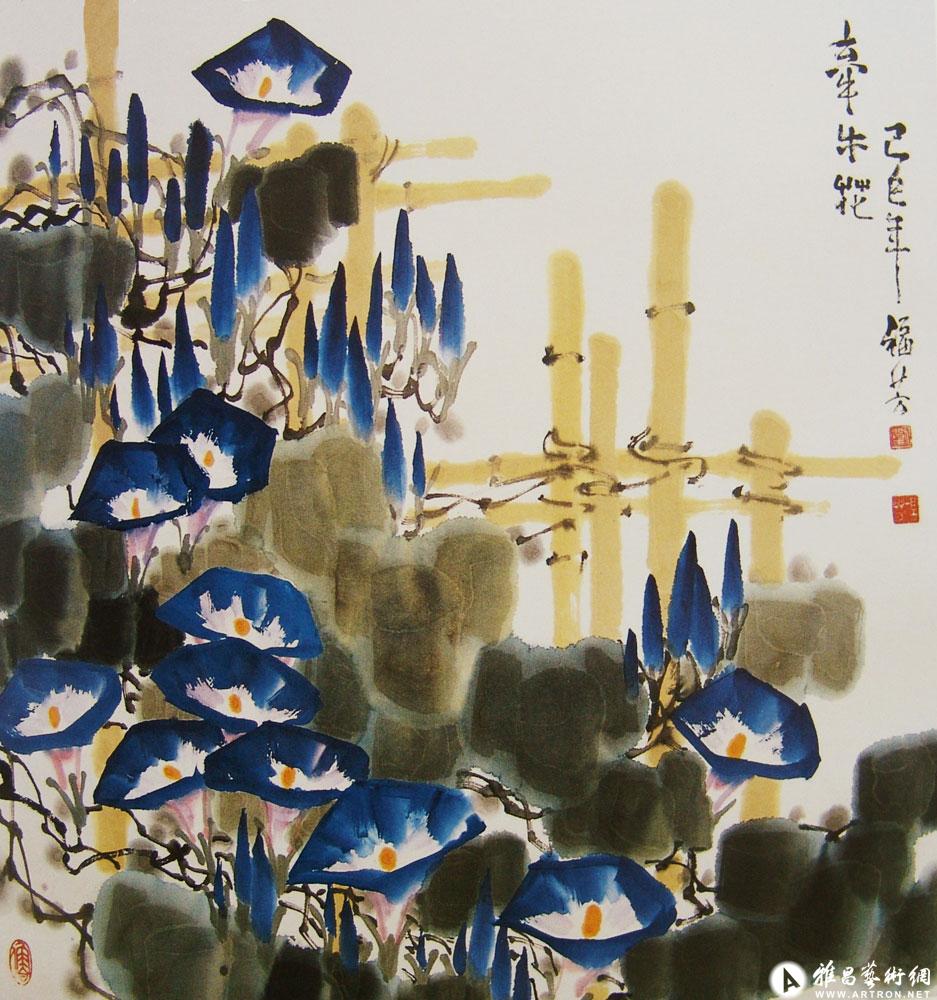 牽牛花
己巳年
福芳
雅昌藝術網
WWW.ARTRON.NET